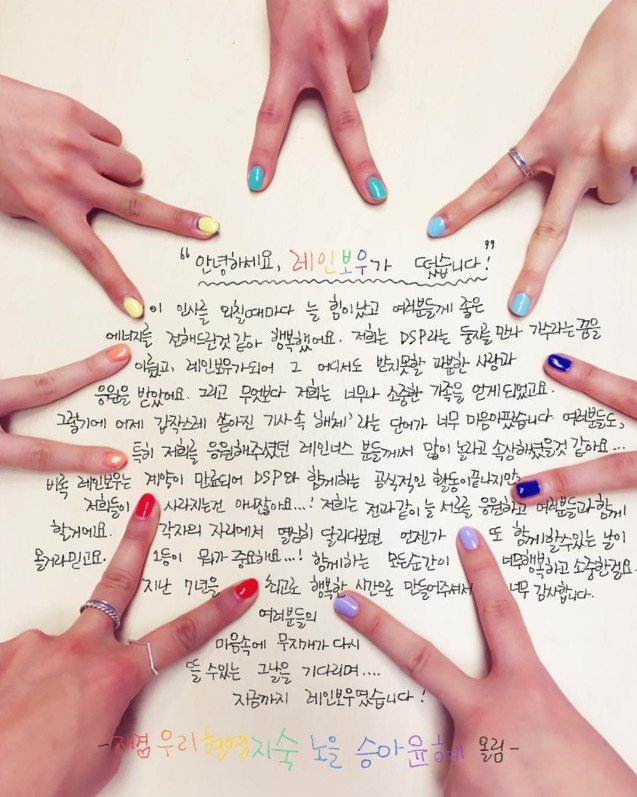 "안녕하세요, 레인보우가 떴습니다!"
이 인사를 외칠때마다 늘 힘이났고 여러분들께 좋은
에너지를 전해드릴것 같아 행복했어요. 저희는 DSP라는 둥지를 만나 가수라는 꿈을
이뤘고, 레인보우가되어 그 어디서도 받지못할 과분한 사랑과
응원을 받았어요. 그리고 무엇보다 저희는 너무나 소중한 가족을 얻게되었고요.
그렇기에 어제 갑작스레 쏟아진 기사속 '해체'라는 단어가 너무 마음아팠습니다 여러분들도,
특히 저희를 응원해주셨던 레인너스 분들께서 많이 놀라고 속상해하셨을것 같아요...
비록 레인보우는 계약이 만료되어 DSP와 함께하는 공식적인 활동이끝나지만
저희들이 사라지는건 아니잖아요...! 저희는 전과같이 늘 서로를 응원하고 여러분들과 함께
할거에요. 각자의 자리에서 열심히 달리다보면 언젠가 또 함께할수있는 날이
올거라믿고요. 1등이 뭐가 중요해요...! 함께하는 모든순간이 너무행복하고 소중한걸요.
지난 7년을 최고로 행복한 시간으로 만들어주셔서 너무 감사합니다.
여러분들의
마음속에 무지개가 다시
뜰 수있는 그날을 기다리며....
지금까지 레인보우였습니다!
-재경 우리 현영 지숙 노을 승아 윤혜 올림-